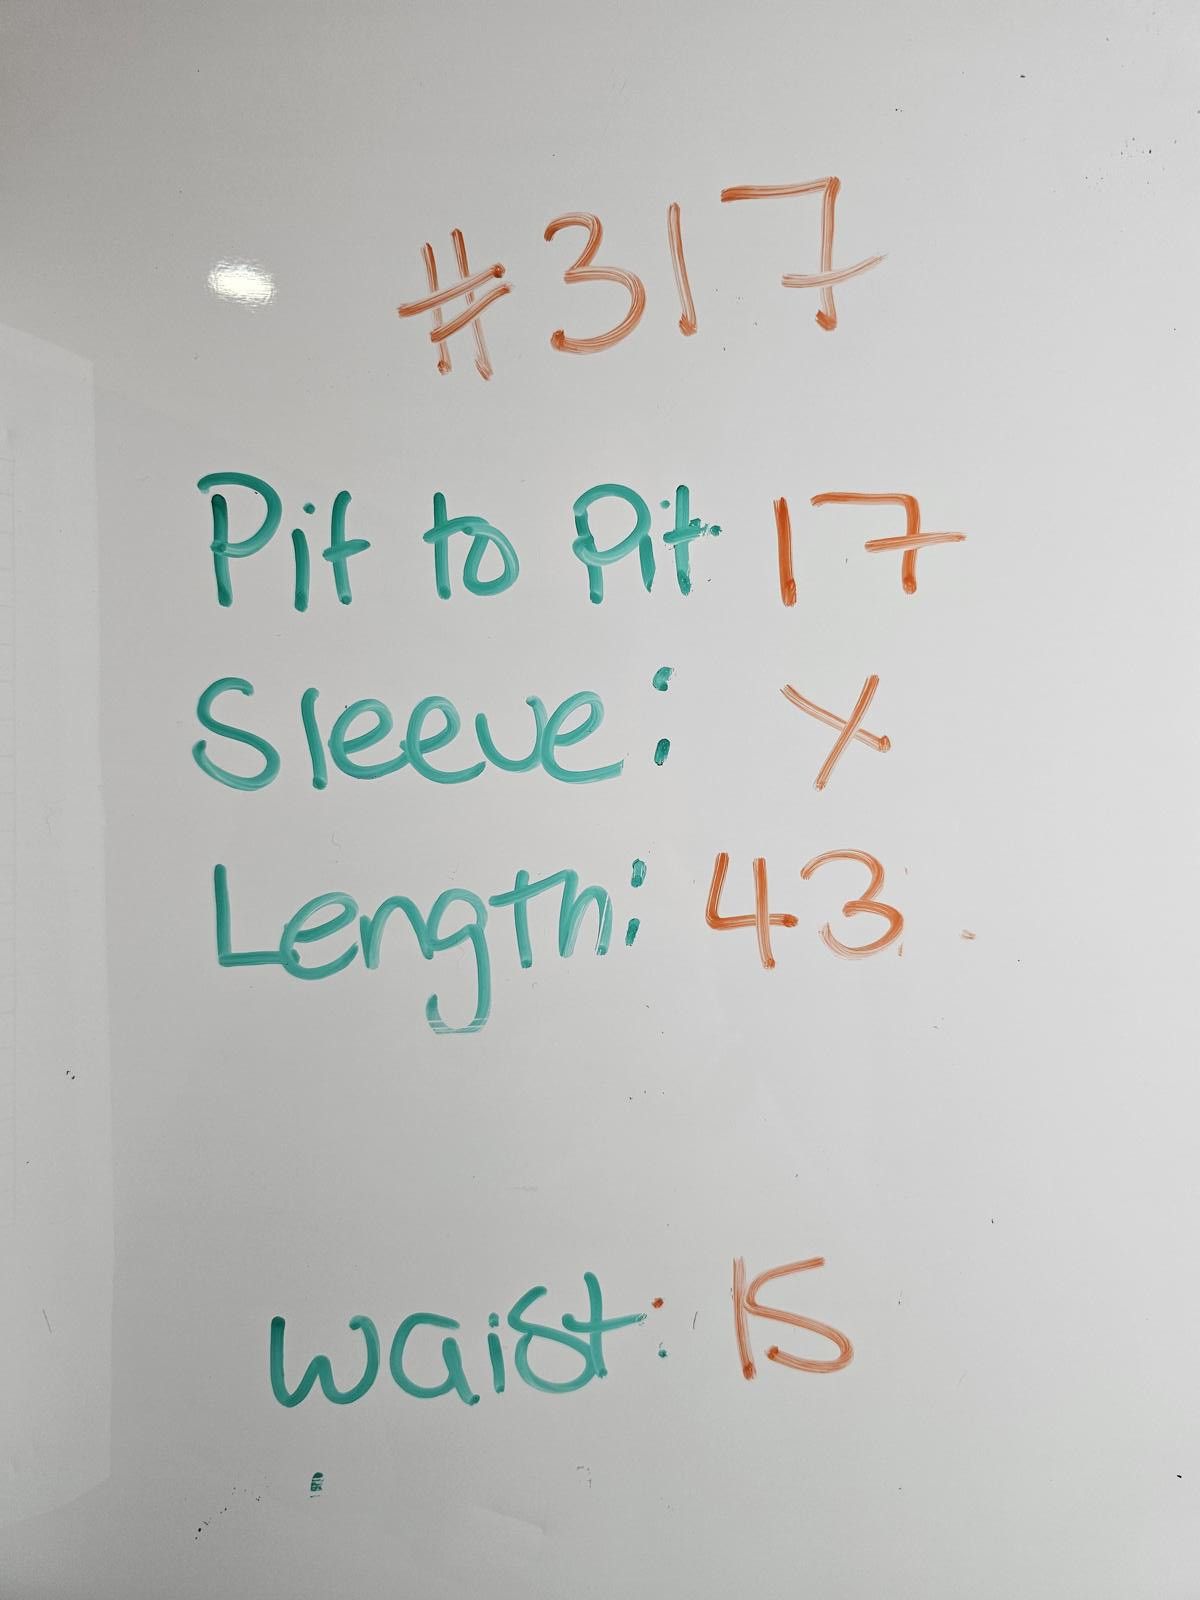 #317
Pit to Pit: 17
Sleeve: X
Length: 43
Waist: 15